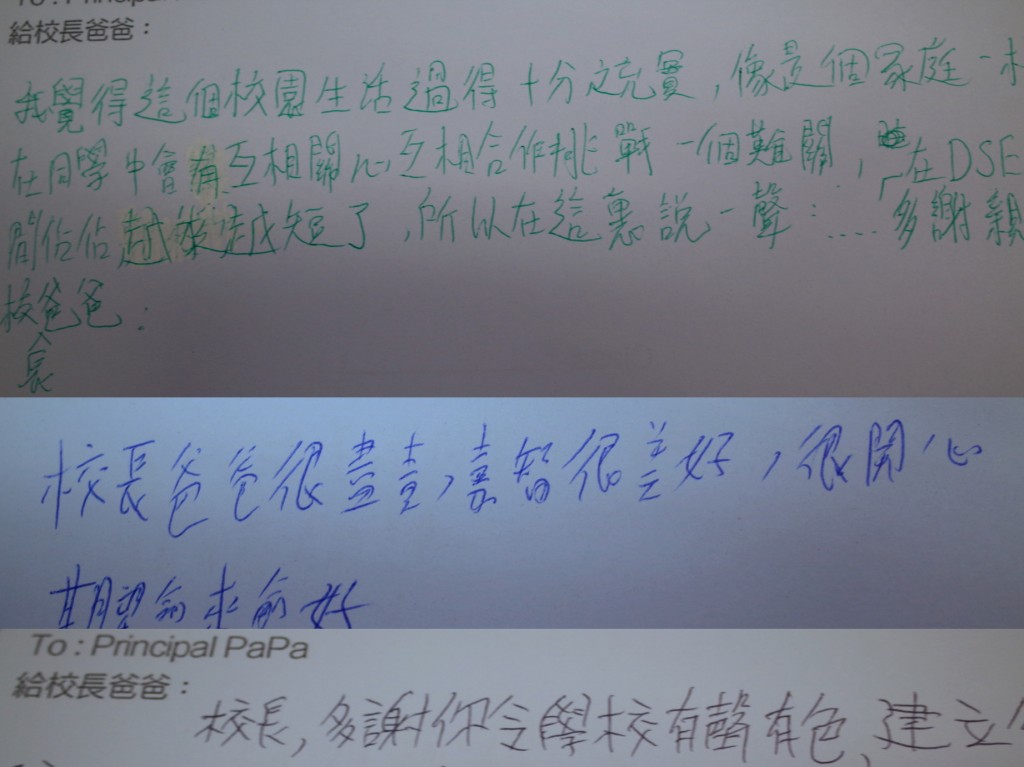 給校長爸爸：
我覺得這個校園生活過得十分之充實，像是個家庭一
在同學中會有互相關心互相合作挑戰一個難關，在DSE
間佔佔越來越短了，所以在這裏說一聲：....「多謝親
校長爸爸：
校長爸爸很盡責，嘉智很美好，很開心
期望愈來愈好
To : Principal PaPa
給校長爸爸：
校長，多謝你令學校有聲有色、建立